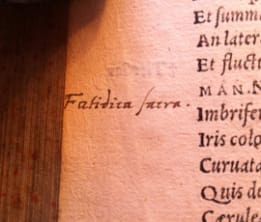 Et summ
An later
Fatidica sacra.
Et fluct
MAN.N
Imbrifer
Iris colo
Curuata
Quis de
Cærule